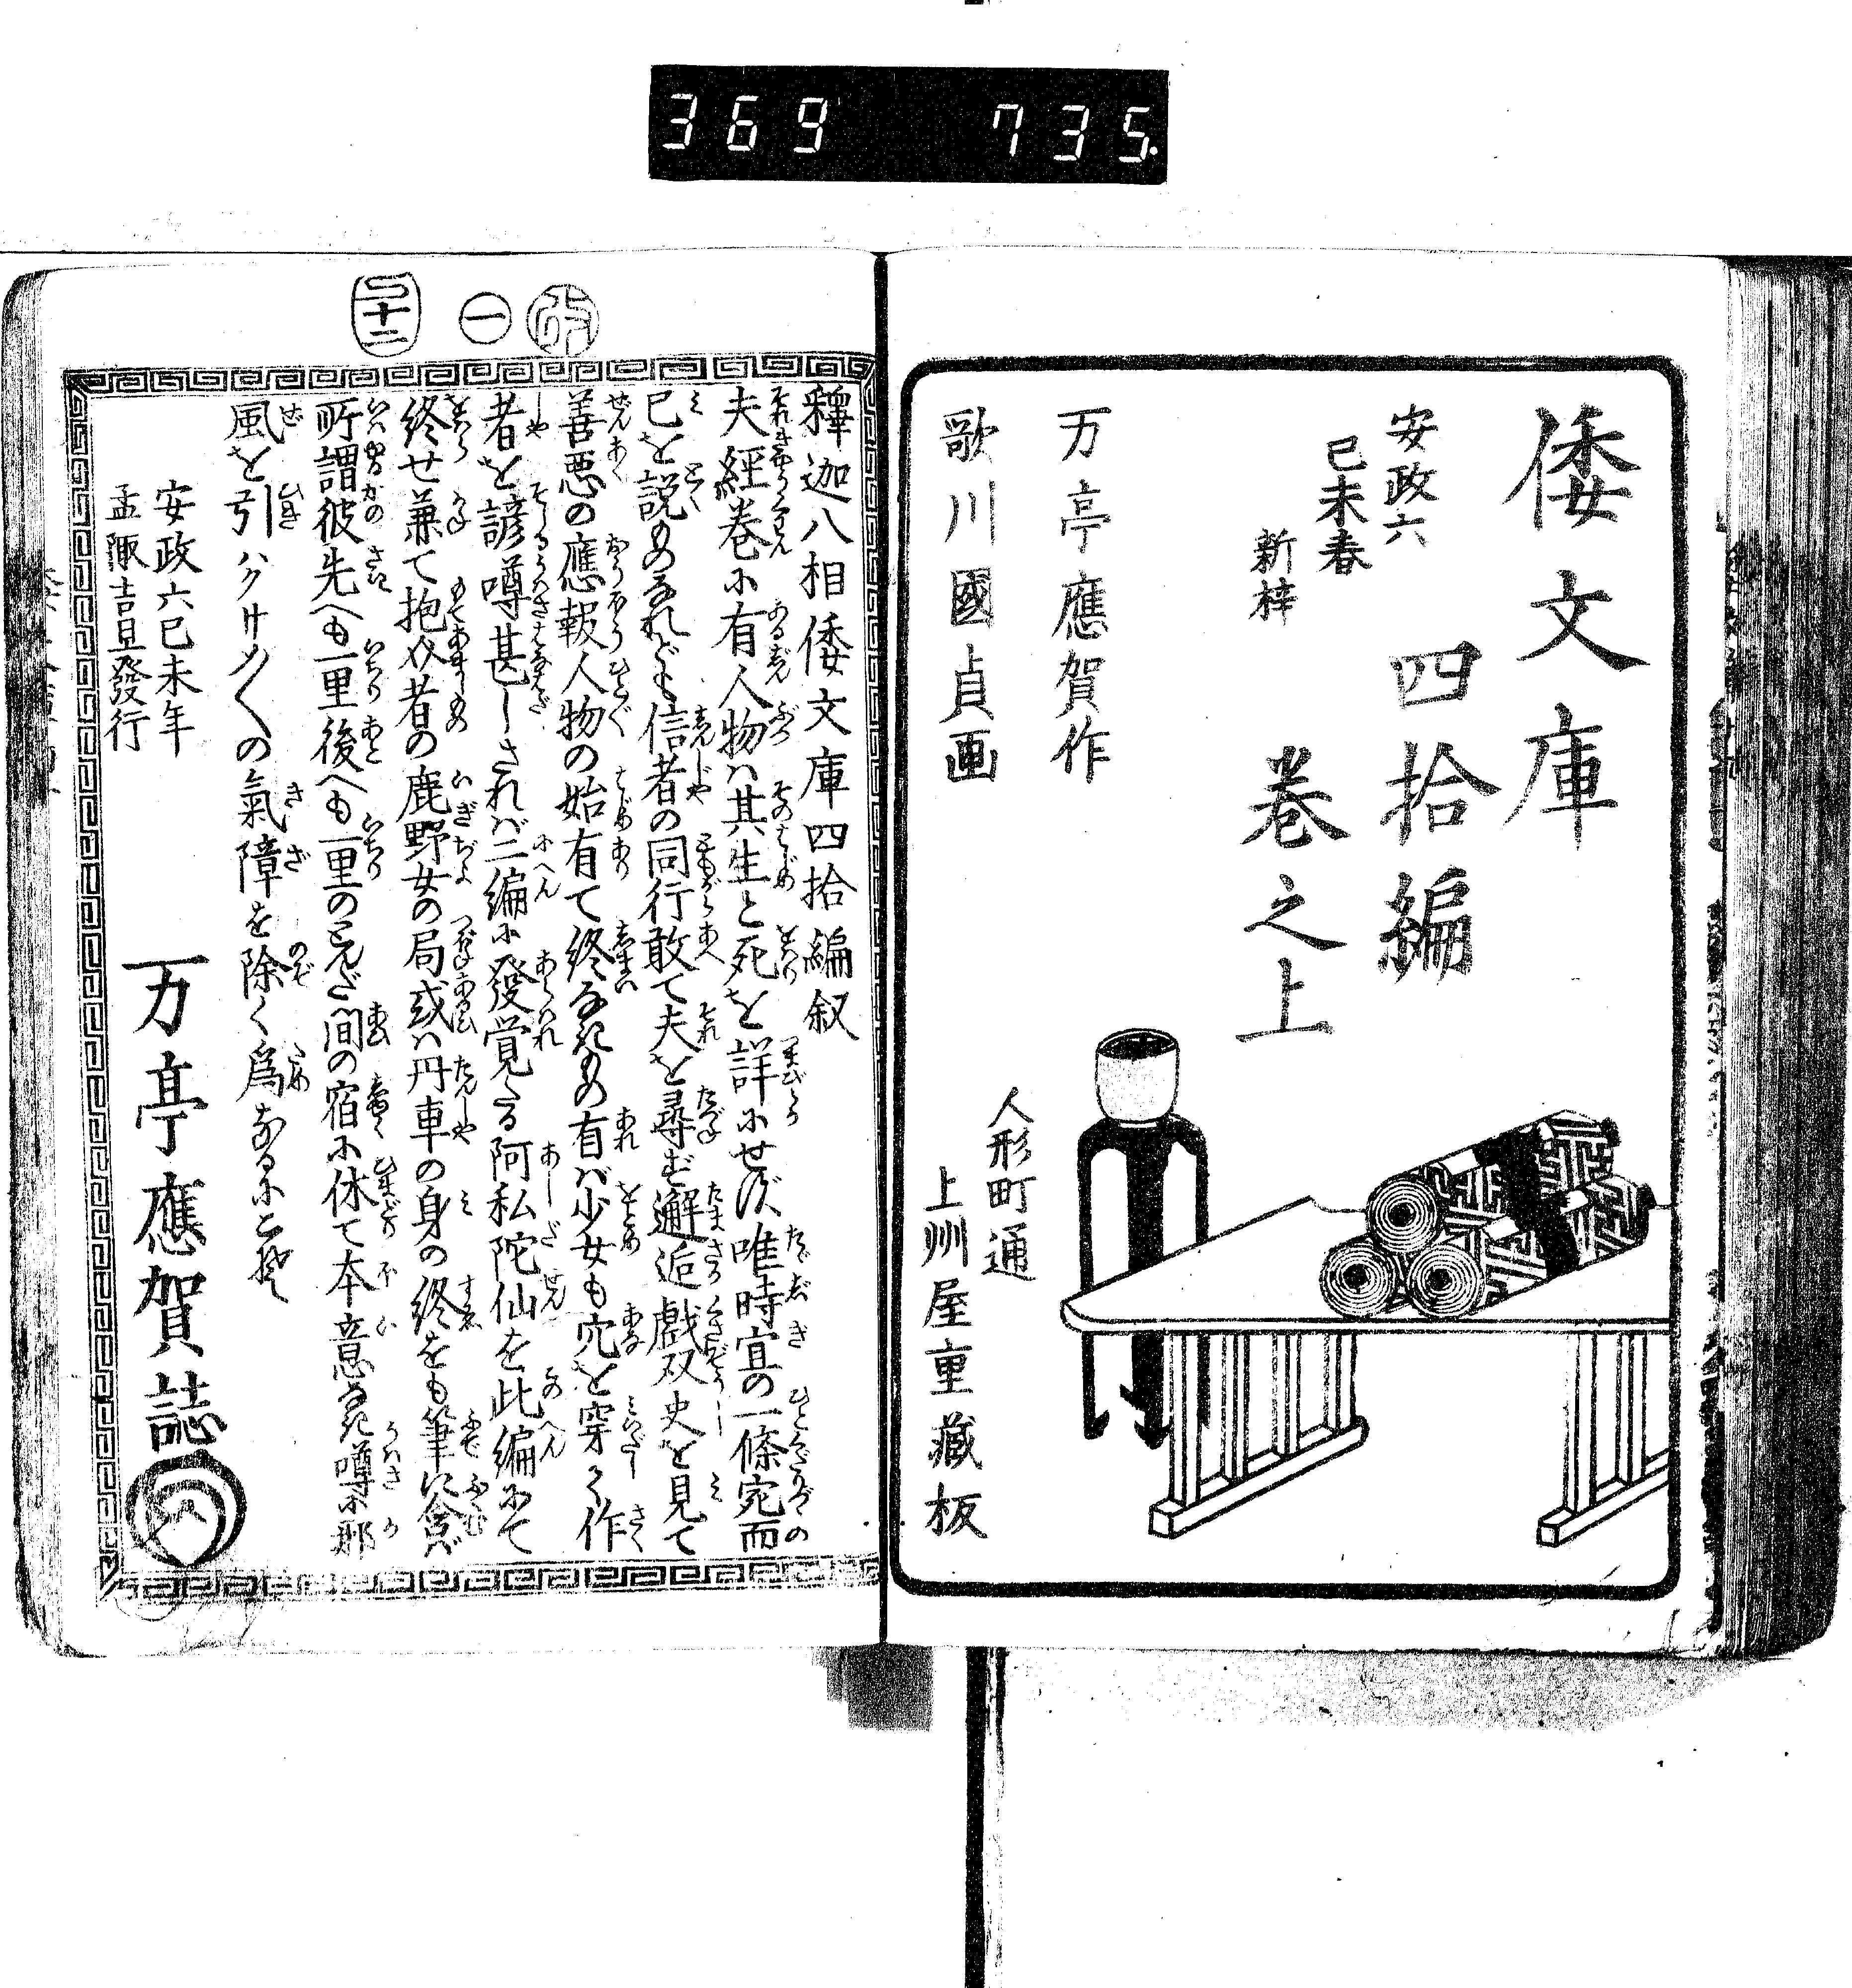 369 735.
倭文庫
四拾編
安政六
己未春
新梓
巻之上
万亭應賀作
歌川國貞画
人形町通
上州屋重藏板
改
一
釋迦八相倭文庫四拾編叙
夫經巻に有人物ハ其生と死を詳にせず唯時宜の一條宛而
已を説ものなれども信者の同行敢て夫を尋ず邂逅戯双史を見て
善悪の應報人物の始有て終なきもの有ば少女も穴を穿く作
者を諺噂甚しされバ二編に發覚たる阿私陀仙を此編にて
終せ兼て抱
者の鹿野女の局或ハ丹車の身の終をも筆に含ば
所謂彼先へも一里後へも一里の
間の宿に休て本意なき噂に那
風を引ハクサメ〳〵の氣障を除く為なるにこそ
安政六己未年
孟陬吉旦發行
万亭應賀誌